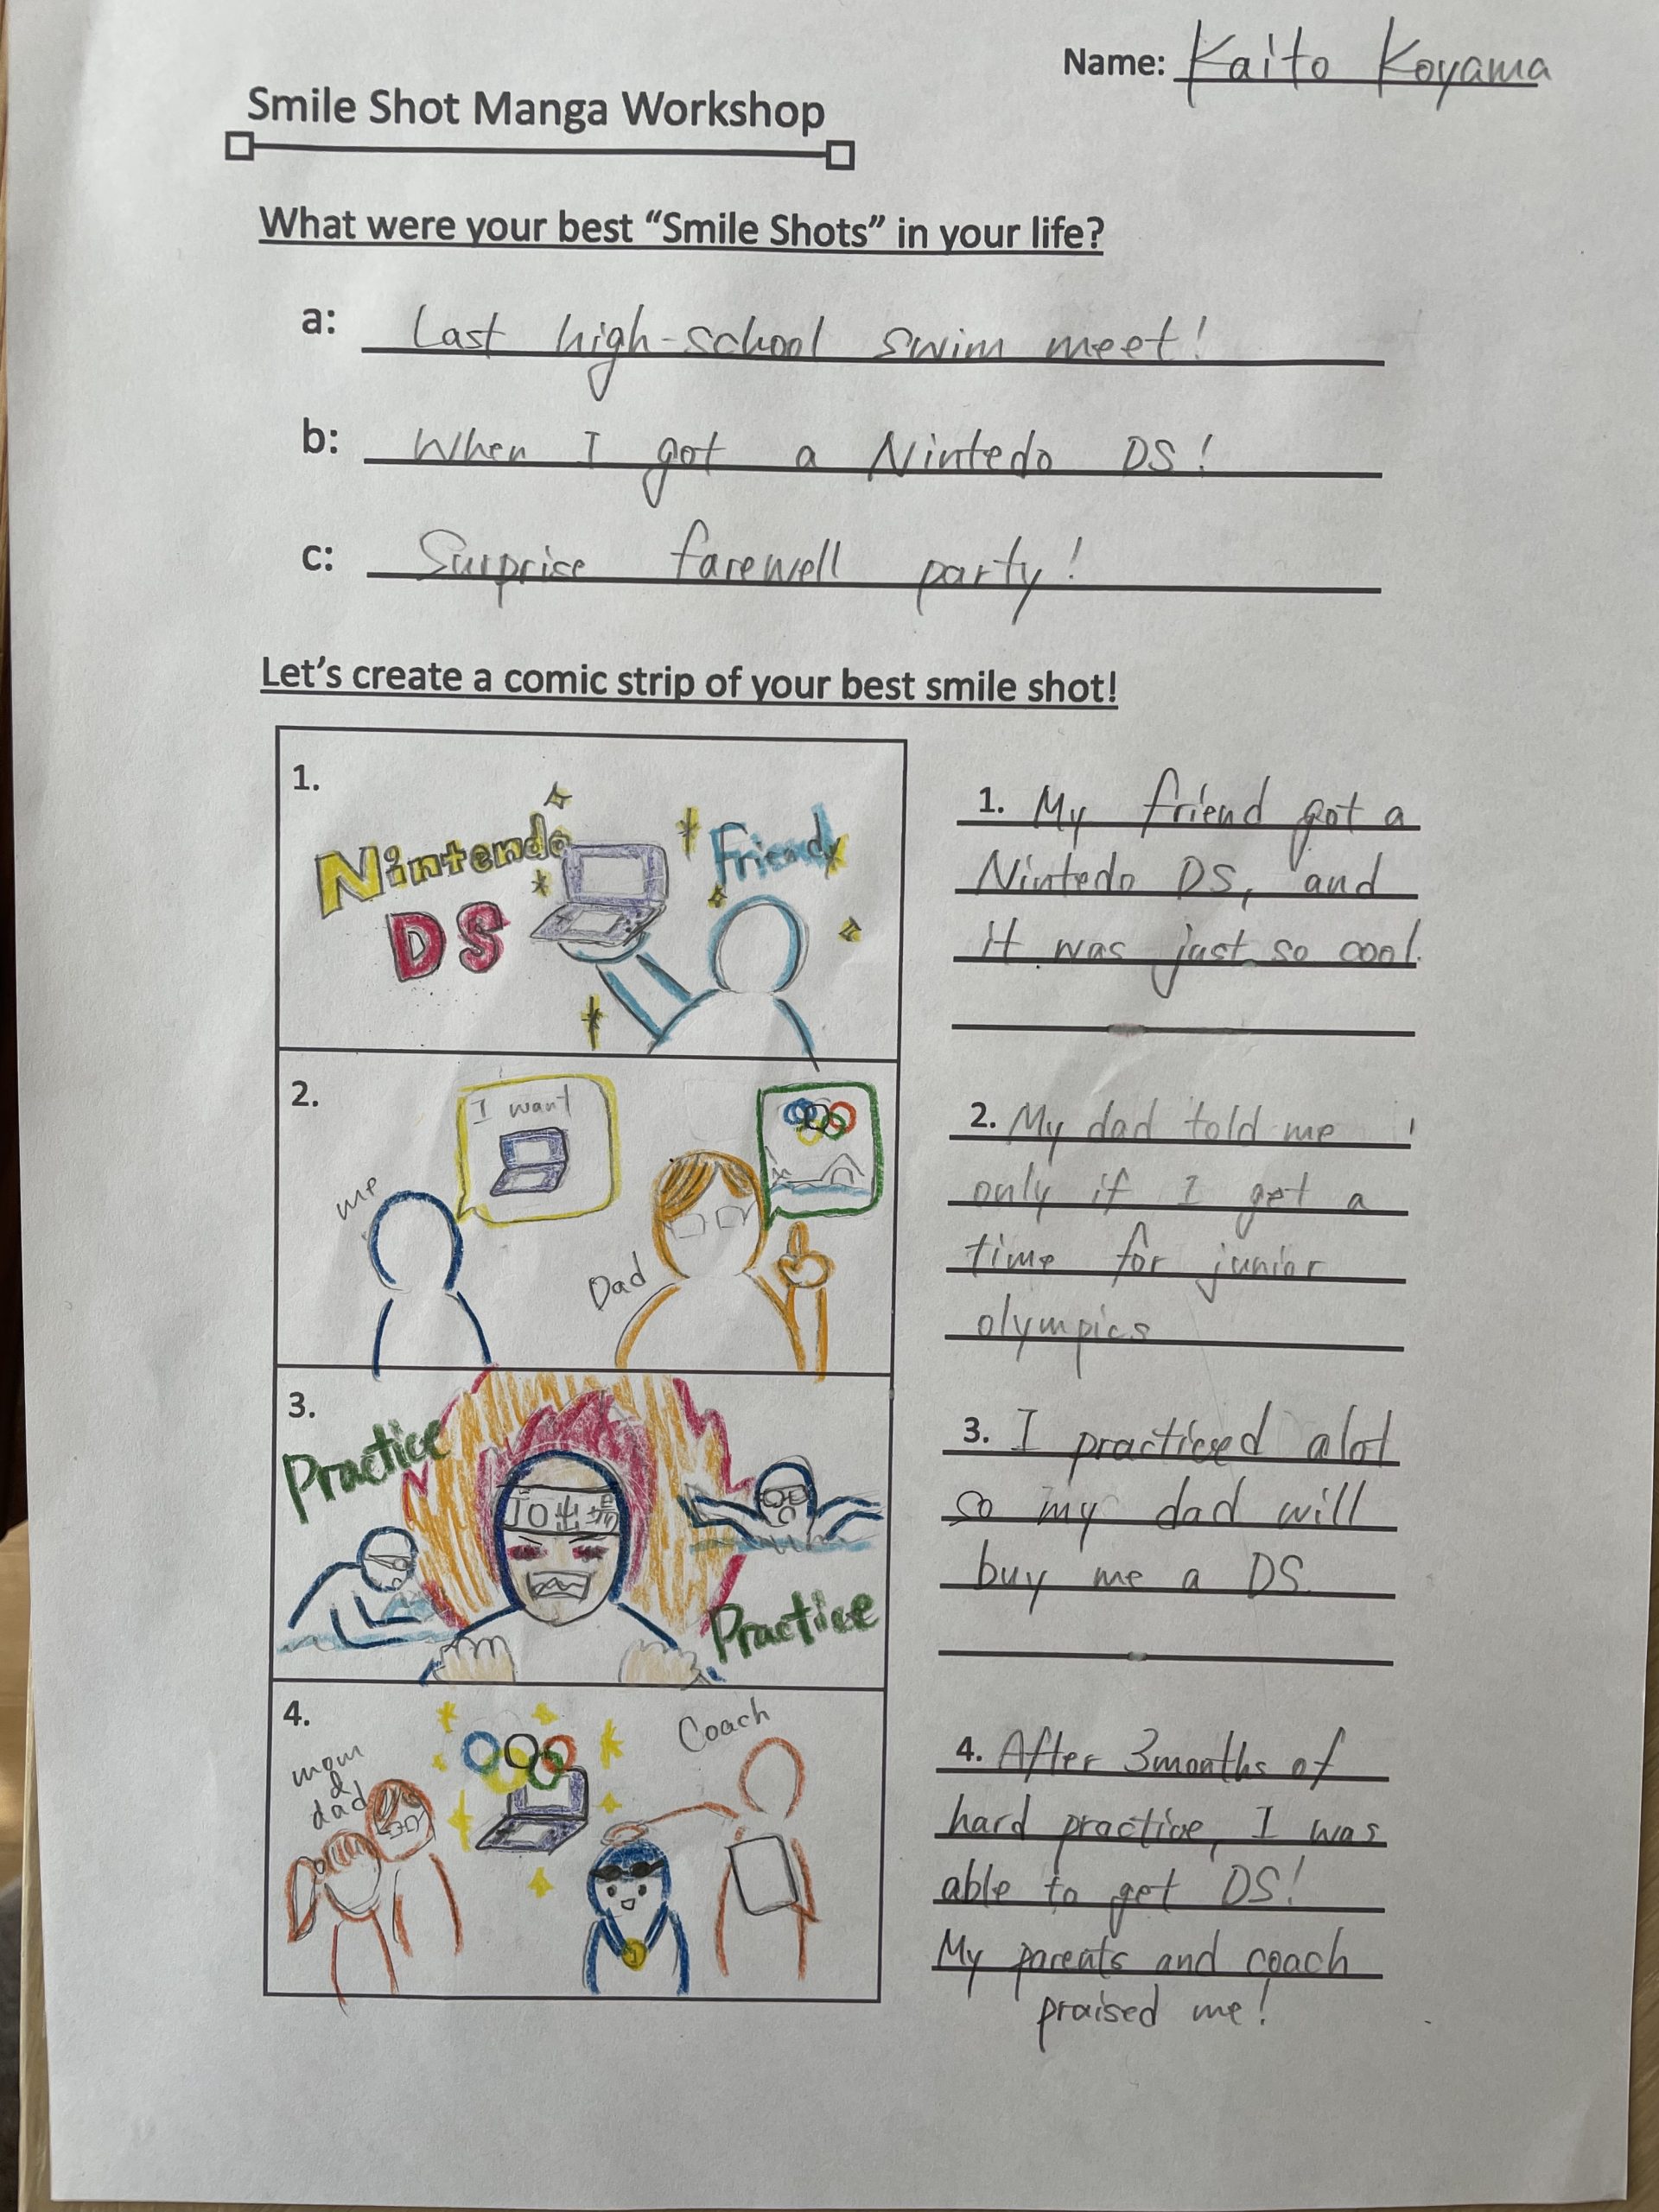 Name: Kaito Koyama
Smile Shot Manga Workshop
What were your best “Smile Shots” in your life?
a: Last high-school swim meet!
b: When I got a Nintedo DS!
c: Surprise farewell party!
Let’s create a comic strip of your best smile shot!
1.
Nintendo
DS
Friend
1. My friend got a
Nintedo DS, and
it was just so cool.
2.
I want
me
Dad
2. My dad told me
only if I get a
time for junior
olympics
3.
Practice
JO出場
Practice
3. I practiced alot
so my dad will
buy me a DS
4.
mom
&
dad
Coach
4. After 3months of
hard practice, I was
able to get DS!
My parents and coach
praised me!